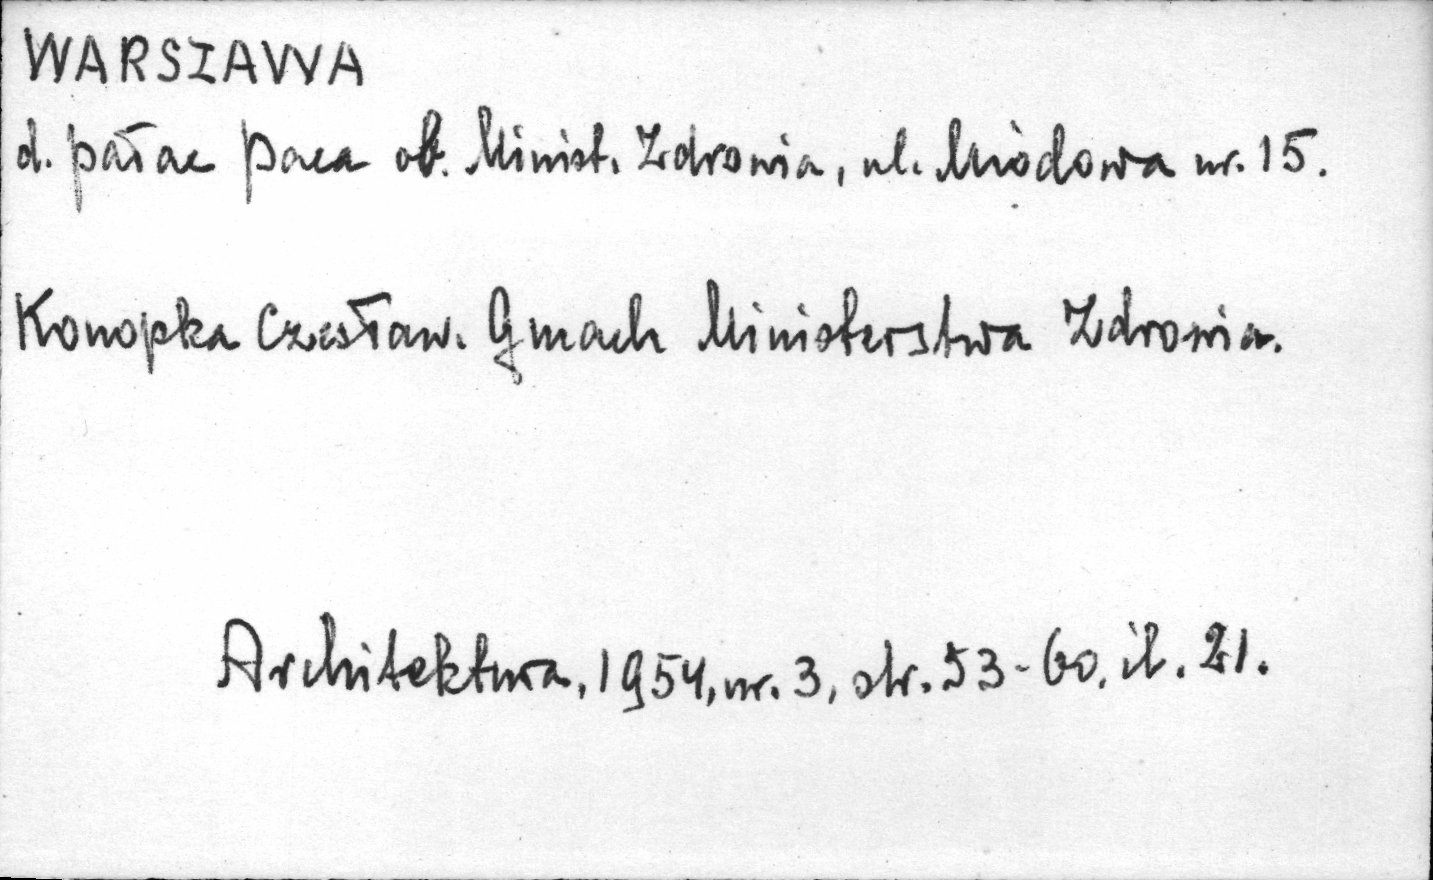 WARSZAWA
d. pałac Paca ob. Minist. Zdrowia, ul. Miodowa nr. 15.
Konopka Czesław. Gmach Ministerstwa Zdrowia.
Architektura, 1954, nr. 3, str. 53-60, il. 21.